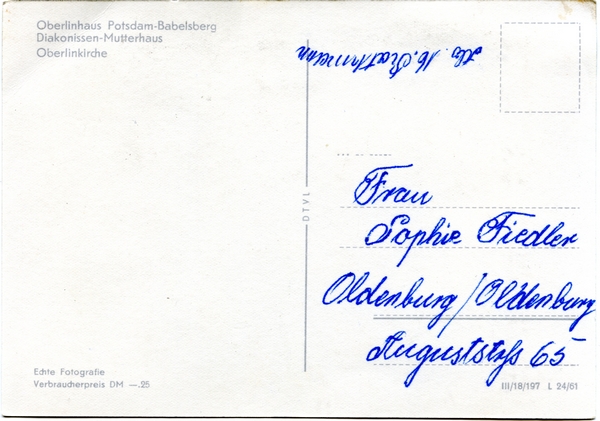 Oberlinhaus Potsdam-Babelsberg
Diakonissen-Mutterhaus
Oberlinkirche
Frau
Sophie Fiedler
Oldenburg/Oldenburg
Auguststrß 65
DTVL
Echte Fotografie
Verbraucherpreis DM —.25
III/18/197 L 24/61